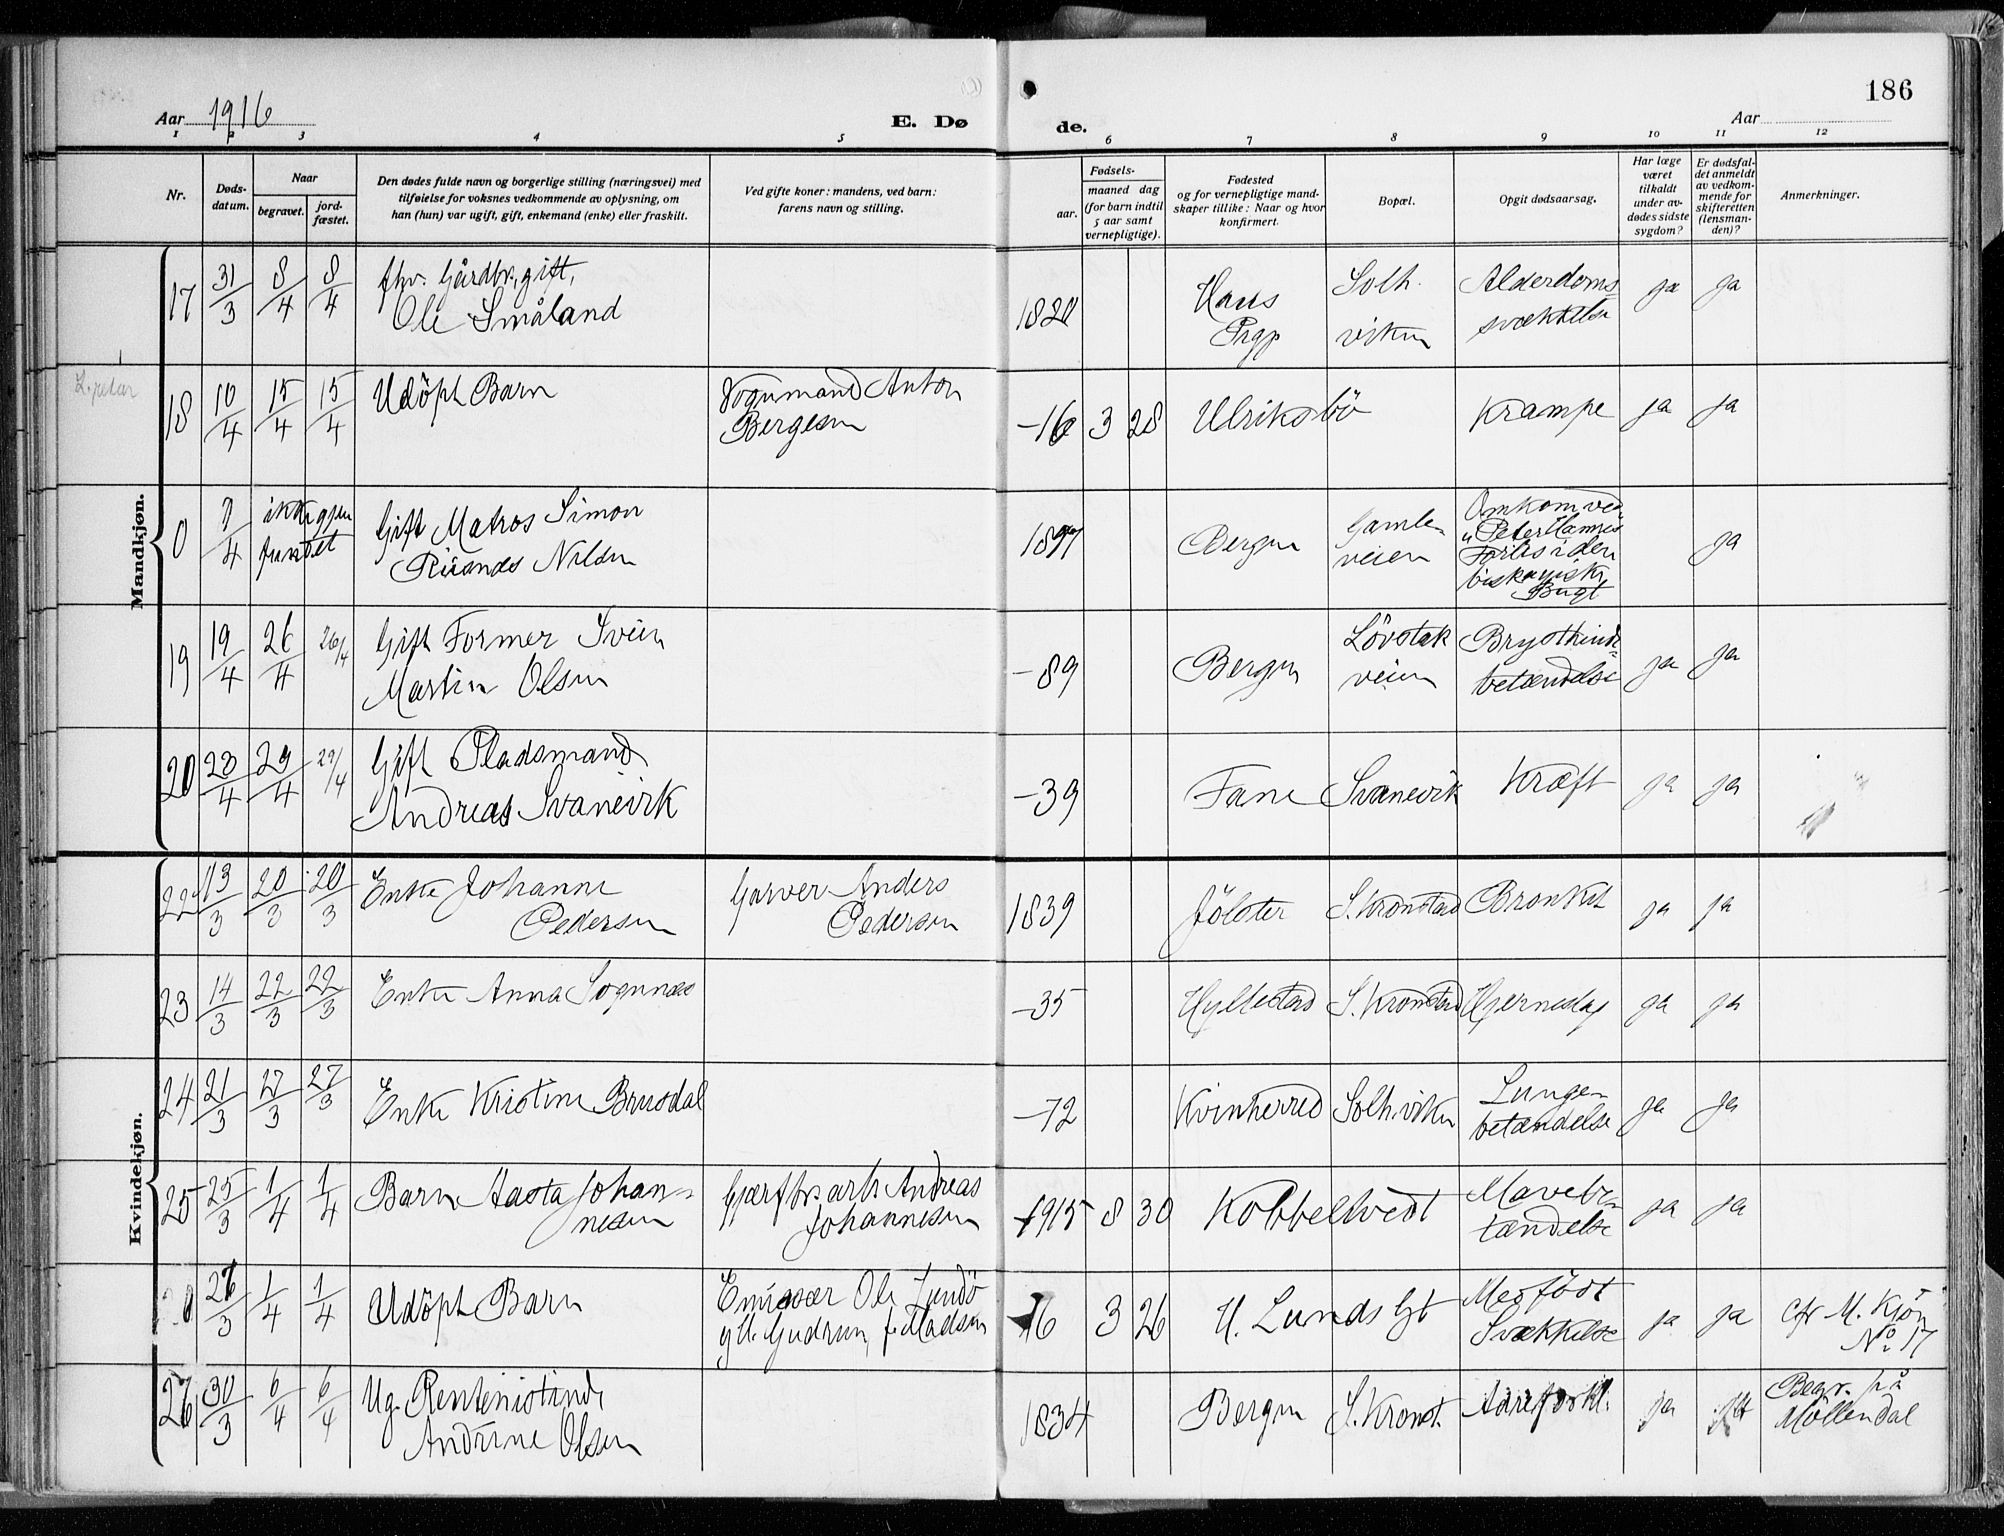 186
Aar 1916
E. Dø
de.
Aar
1 2 3 4 5 6 7 8 9 10 11 12
Nr.
Døds-
datum.
Naar
begravet.
jord-
fæstet.
Den dødes fulde navn og borgerlige stilling (næringsvei) med
tilføielse for voksnes vedkommende av oplysning, om
han (hun) var ugift, gift, enkemand (enke) eller fraskilt.
Ved gifte koner: mandens, ved barn:
farens navn og stilling.
Fødsels-
aar.
maaned dag
(for barn indtil
5 aar samt
vernepligtige).
Fødested
og for vernepligtige mand-
skaper tillike: Naar og hvor
konfirmert.
Bopæl.
Opgit dødsaarsag.
Har læge
været
tilkaldt
under av-
dødes sidste
sygdom?
Er dødsfal-
det anmeldt
av vedkom-
mende for
skifteretten
(lensman-
den)?
Anmerkninger.
Mandkjøn.
17 31/3 8/4 8/4 fhv. Gårdbr., gift,
Ole Småland
1820 Haus
Prgp
Solh.
viken
Alderdoms=
svækkelse
ja ja
18 10/4 15/4 15/4 Udöpt Barn
Vognmand Anton
Bergesen
-16 3 28 Ulriksbö Krampe ja ja
0 7/4 ikke gjen
fundet
Gift Matros Simon
Nilsen
1897 Bergen Gamle-
veien
Omkom ved
"Peter Hamres
Forlis i den
biskayiske
Bugt
ja
19 19/4 26/4 26/4 Gift Former Svein
Martin Olsen
-89 Bergen Lövstak
veien
Brysthinde=
betændelse
ja ja
20 23/4 29/4 29/4 Gift Pladsmand
Andreas Svanevik
-39 Fane Svanevik Kræft ja ja
Kvindekjøn.
22 13/3 20/3 20/3 Enke Johanne
Pedersen
Garver Anders
Pedersen
1839 Jölster S. Kronstad Bronkit ja ja
23 14/3 22/3 22/3 Enke Anna Sognnæs
-35 Hyllestad S. Kronstad Hjerneslag ja ja
24 21/3 27/3 27/3 Enke Kristine Brusdal
-72 Kvinherred Solh.viken Lunge-
betændelse
ja ja
25 25/3 1/4 1/4 Barn Aasta Johan-
nesen
arb. Andreas
Johannesen
1915 8 30 Kobbeltvedt Mavebe-
tændelse
ja ja
26/3 1/4 1/4 Udöpt Barn
Emissær Ole Lundö
Gudrun, f. Madsen
16 3 26 H. Lunds Gt Medfödt
Svækkelse
ja ja Cfr M. Kjön
No 17
26 30/3 6/4 6/4 Ug. Rentenistinde
Andrine Olsen
1834 Bergen S. Kronst. Aareforkl. ja
Begr. på
Möllendal